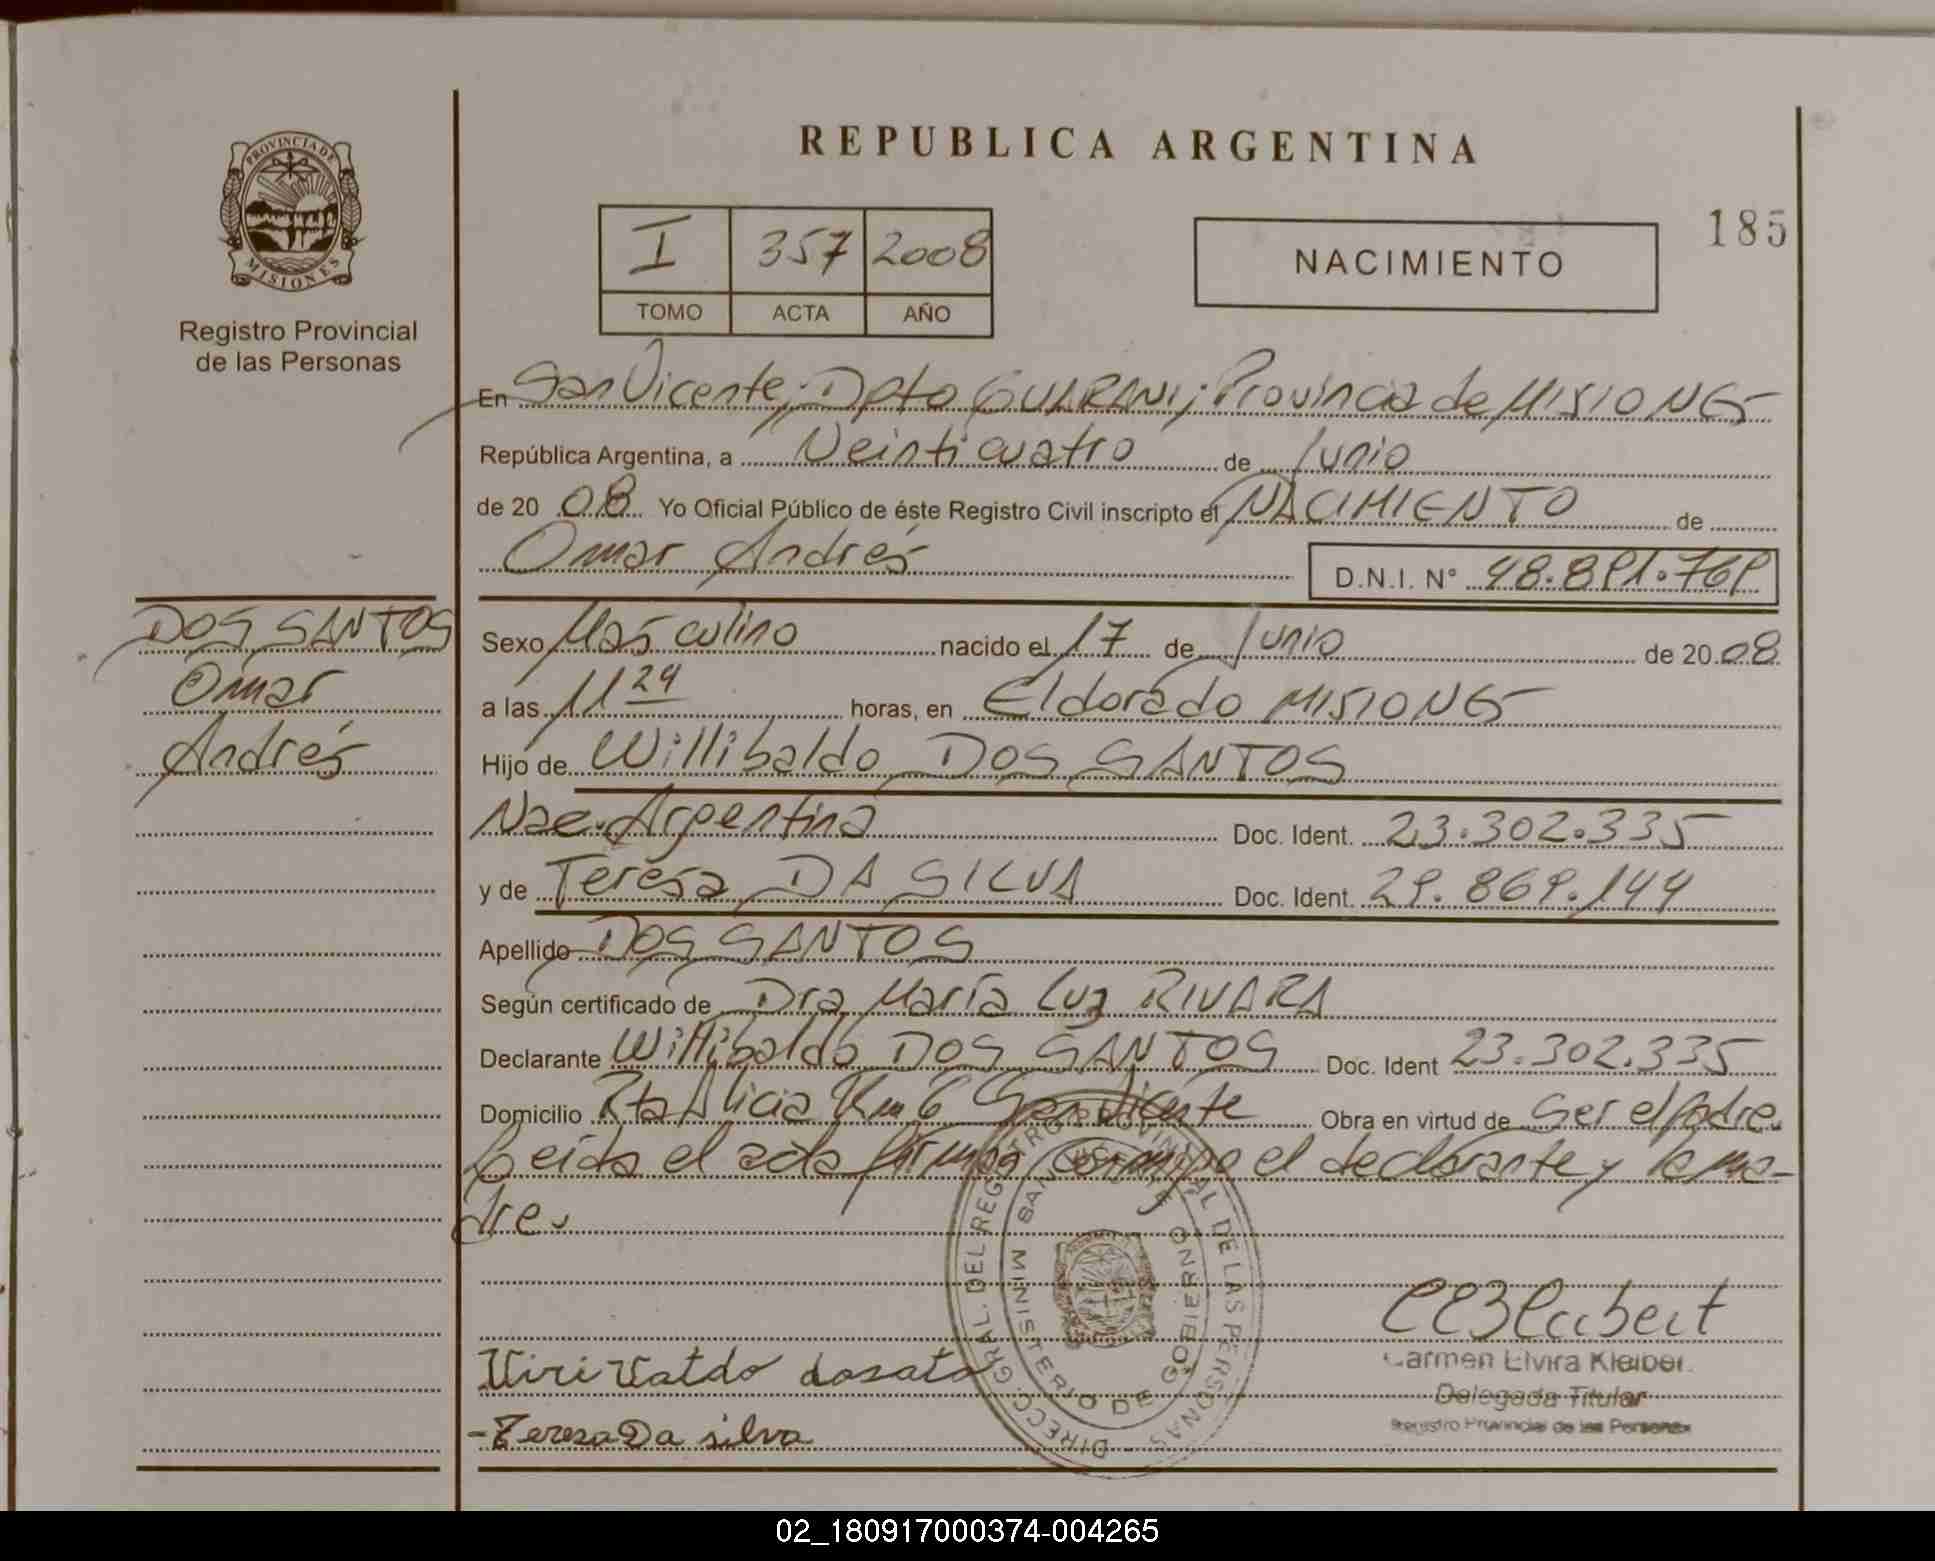 REPUBLICA ARGENTINA
PROVINCIA DE
MISIONES
Registro Provincial
de las Personas
I 357 2008
TOMO ACTA AÑO
NACIMIENTO
185
En San Vicente, Dpto GUARANI, Provincia de MISIONES
República Argentina, a Veinticuatro de Junio
de 2008 Yo Oficial Público de éste Registro Civil inscripto el NACIMIENTO de
Omar Andrés D.N.I. N° 48.891.769
DOS SANTOS
Omar
Andrés
Sexo Masculino nacido el 17 de Junio de 2008
a las 11 29 horas, en Eldorado MISIONES
Hijo de Willibaldo DOS SANTOS
Nac. Argentina Doc. Ident. 23.302.335
y de Teresa DA SILVA Doc. Ident. 29.869.144
Apellido DOS SANTOS
Según certificado de Dra María Luz RIVARA
Declarante Willibaldo DOS SANTOS Doc. Ident 23.302.335
Domicilio Rta Alicia Km 6 San Vicente Obra en virtud de Ser el padre.
Leída el acta firman conmigo el declarante y la ma-
dre.
DIRECC. GRAL. DEL REGISTRO PROVINCIAL DE LAS PERSONAS
MINISTERIO DE GOBIERNO
SAN VICENTE
Carmen Elvira Kleiber
Delegada Titular
Registro Provincial de las Personas
Viri Valdo dosato
-Teresa Da silva
02_180917000374-004265